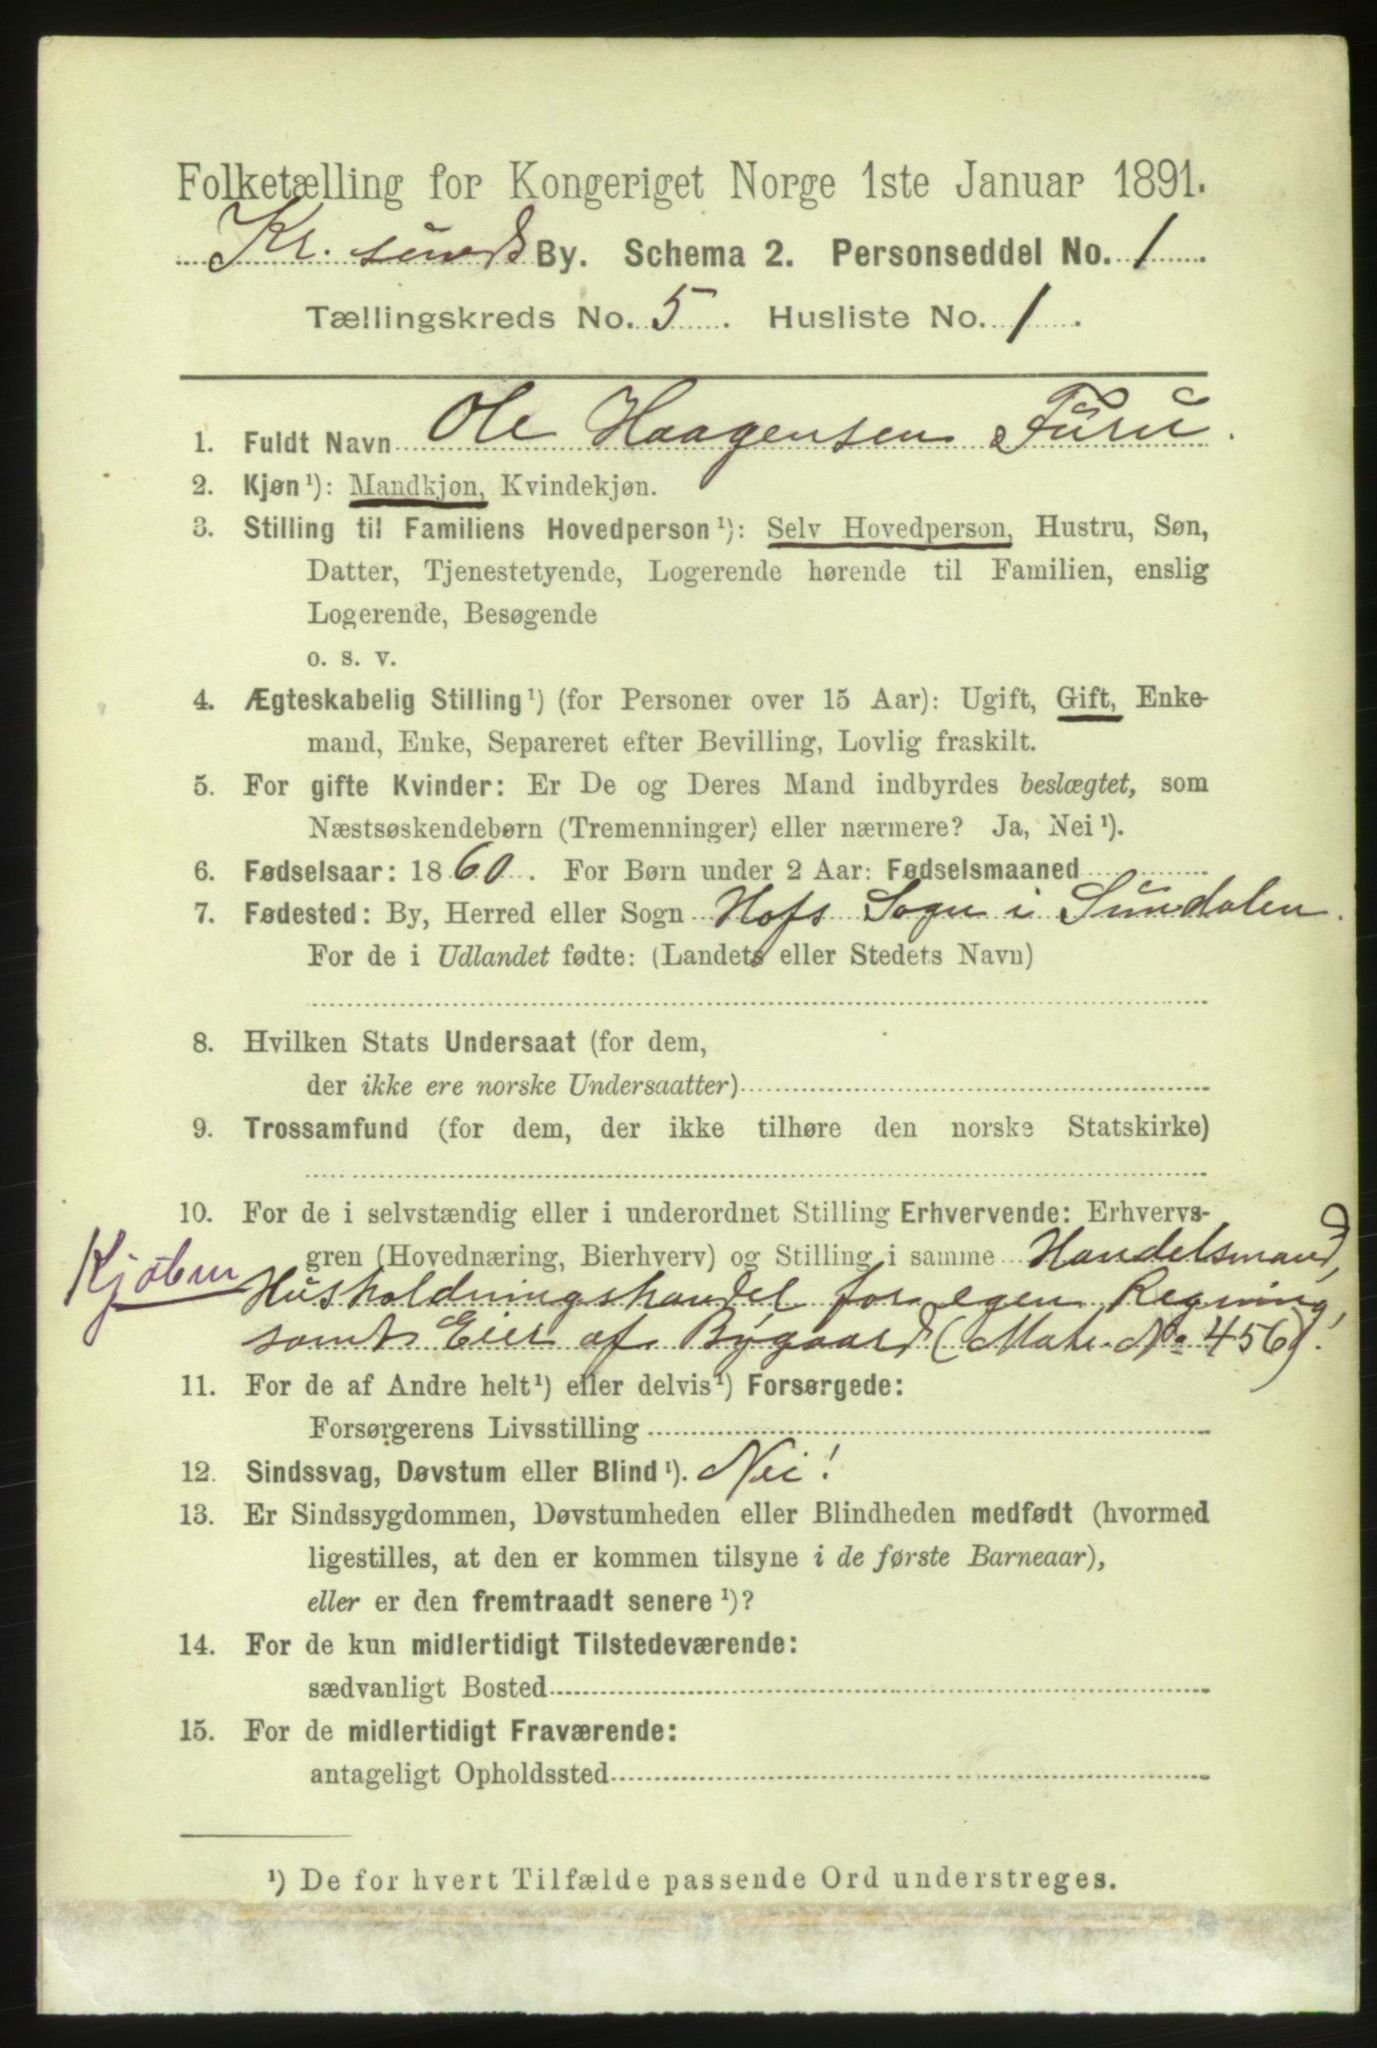 Folketælling for Kongeriget Norge 1ste Januar 1891.
Kr. sunds By. Schema 2. Personseddel No. 1
Tællingskreds No. 5. Husliste No. 1.
1. Fuldt Navn Ole Haagensen Furu.
2. Kjøn¹): Mandkjøn, Kvindekjøn.
3. Stilling til Familiens Hovedperson¹): Selv Hovedperson, Hustru, Søn,
Datter, Tjenestetyende, Logerende hørende til Familien, enslig
Logerende, Besøgende
o. s. v.
4. Ægteskabelig Stilling¹) (for Personer over 15 Aar): Ugift, Gift, Enke-
mand, Enke, Separeret efter Bevilling, Lovlig fraskilt.
5. For gifte Kvinder: Er De og Deres Mand indbyrdes beslægtet, som
Næstsøskendebørn (Tremenninger) eller nærmere? Ja, Nei¹).
6. Fødselsaar: 1860. For Børn under 2 Aar: Fødselsmaaned
7. Fødested: By, Herred eller Sogn Hofs Sogn i Sundalen.
For de i Udlandet fødte: (Landets eller Stedets Navn)
8. Hvilken Stats Undersaat (for dem,
der ikke ere norske Undersaatter)
9. Trossamfund (for dem, der ikke tilhøre den norske Statskirke)
10. For de i selvstændig eller i underordnet Stilling Erhvervende: Erhvervs-
gren (Hovednæring, Bierhverv) og Stilling i samme Handelsmand,
Kjøbm
Husholdningshandel for egen Regning,
samt Eier af Bygaard (Matr. No 456).
11. For de af Andre helt¹) eller delvis¹) Forsørgede:
Forsørgerens Livsstilling
12. Sindssvag, Døvstum eller Blind¹). Nei!
13. Er Sindssygdommen, Døvstumheden eller Blindheden medfødt (hvormed
ligestilles, at den er kommen tilsyne i de første Barneaar),
eller er den fremtraadt senere¹)?
14. For de kun midlertidigt Tilstedeværende:
sædvanligt Bosted
15. For de midlertidigt Fraværende:
antageligt Opholdssted
¹) De for hvert Tilfælde passende Ord understreges.